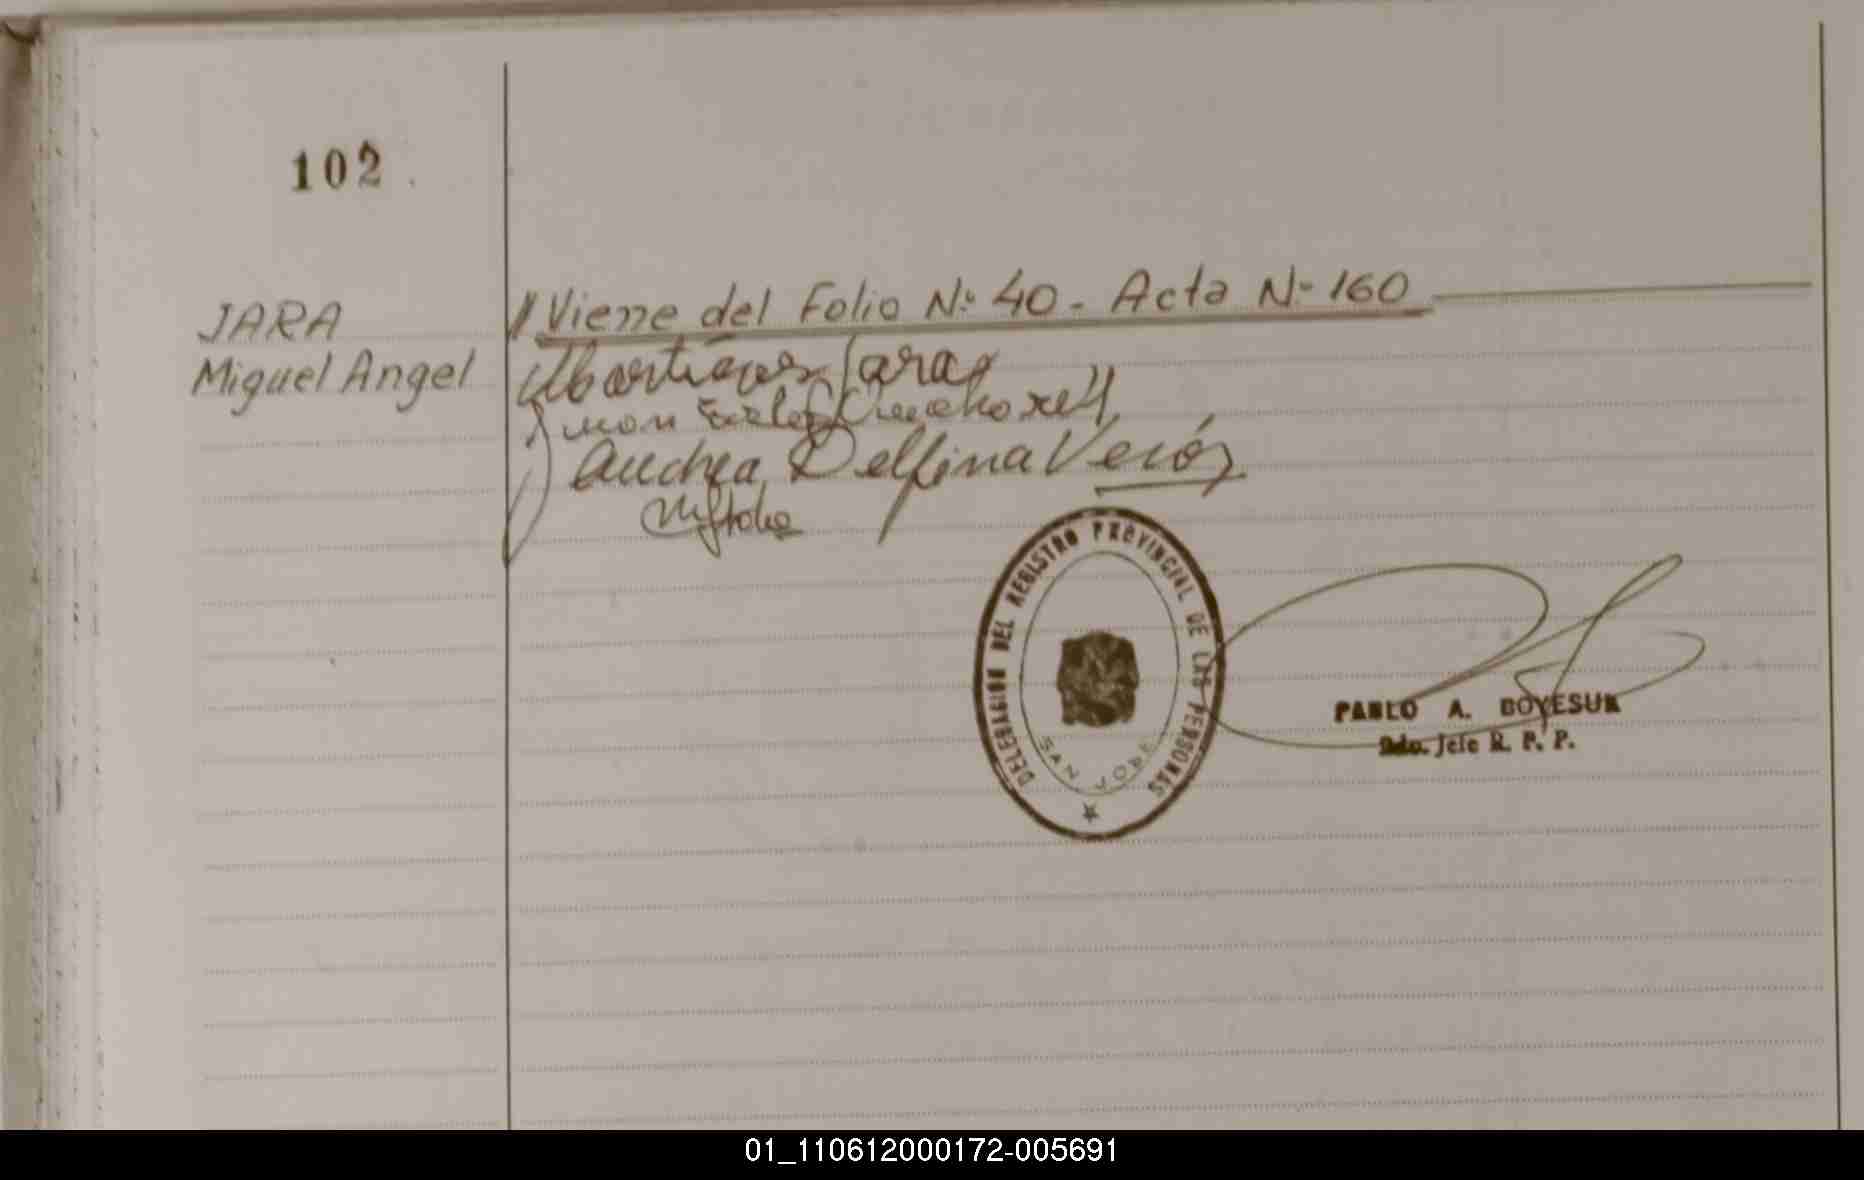 102
JARA
Miguel Angel
// Viene del Folio Nº 40 - Acta Nº 160
Jara
Andrea Delfina Verón
DELEGACION DEL REGISTRO PROVINCIAL DE LAS PERSONAS
SAN JORGE
PABLO A. BOYESUK
Jefe R. P. P.
01_110612000172-005691